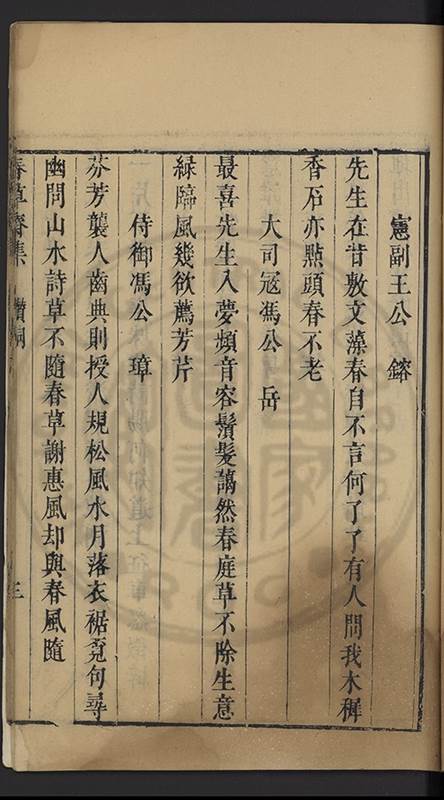 憲副王公鎔
先生在昔敷文藻春自不言何了了有人問我木穉
香石亦點頭春不老
大司冦馮公岳
最喜先生入夢頻音容鬚髮藹然春庭草不除生意
緑臨風幾欲薦芳芹
侍御馮公璋
芬芳襲人齒典則授人規松風水月落衣裾覓句尋
幽問山水詩草不隨春草謝惠風却與春風隨
春草齋集
三